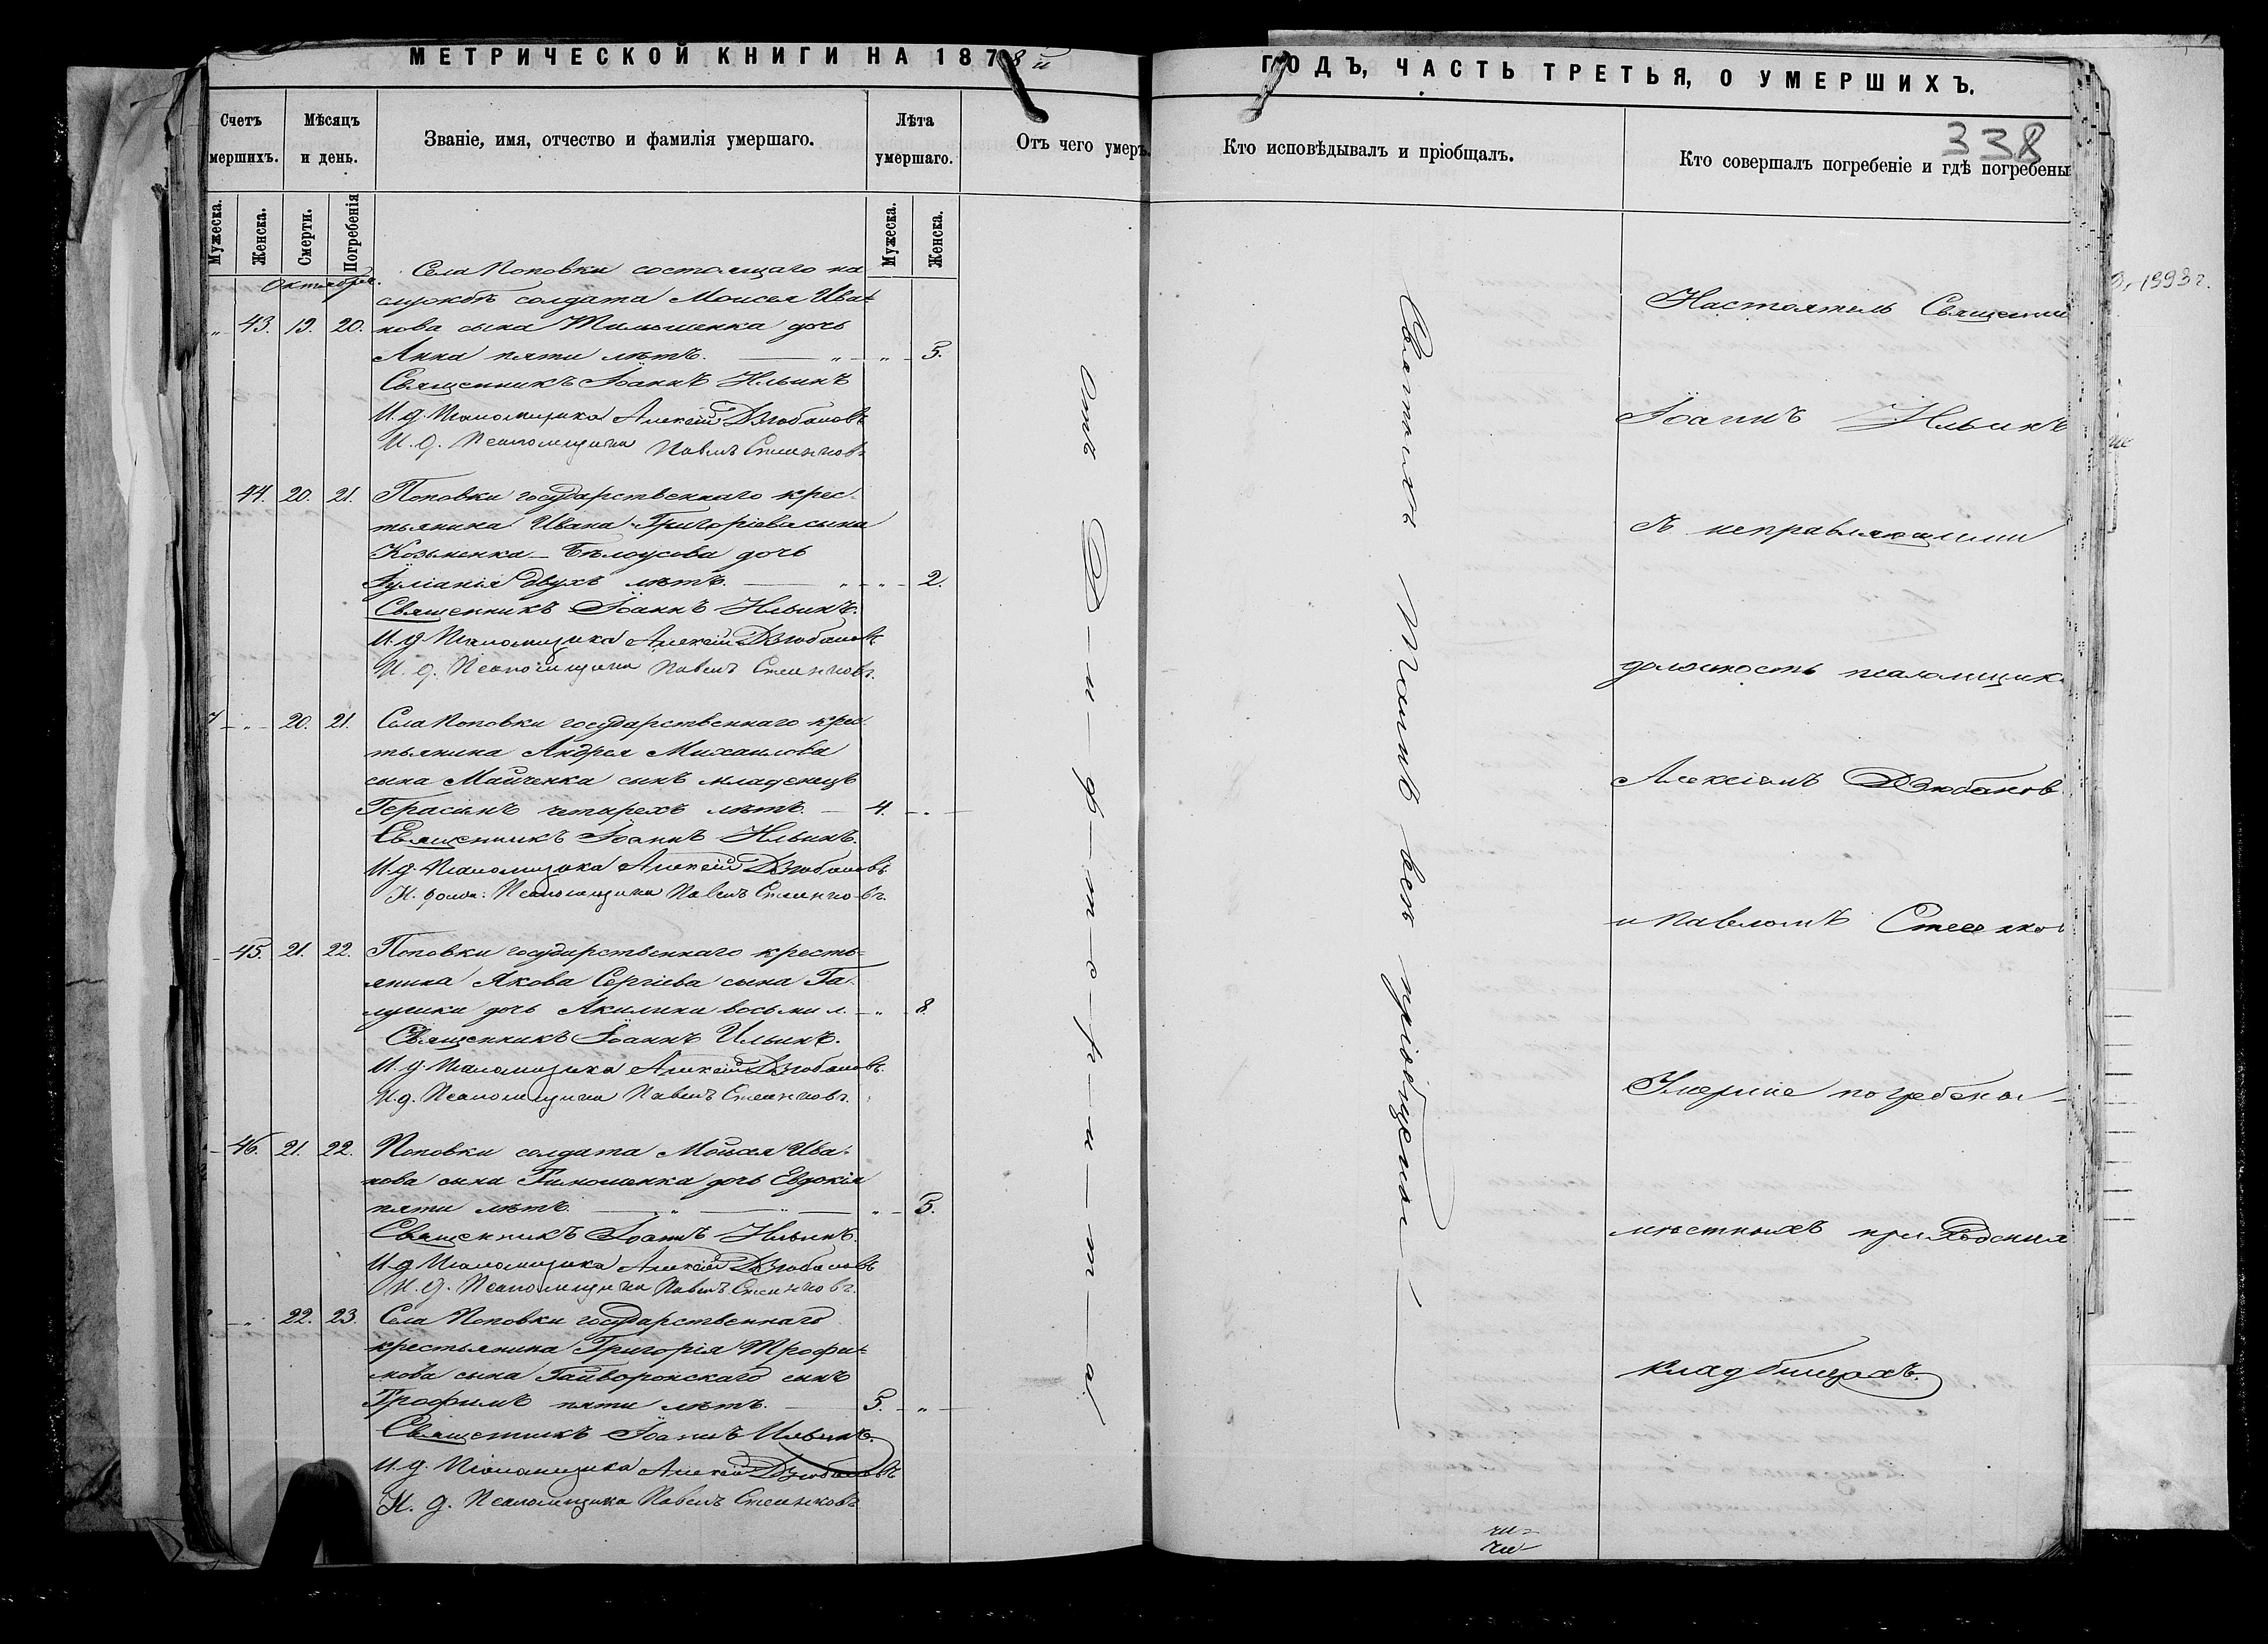 МЕТРИЧЕСКОЙ КНИГИ НА 1878 й
ГОДЪ, ЧАСТЬ ТРЕТЬЯ, О УМЕРШИХЪ.
338
Счетъ
мершихъ.
Мѣсяцъ
и день.
Званіе, имя, отчество и фамилія умершаго.
Лѣта
умершаго.
Отъ чего умеръ.
Кто исповѣдывалъ и пріобщалъ.
Кто совершалъ погребеніе и гдѣ погребены
Мужеска.
Женска.
Смерти.
Погребенія
Мужеска.
Женска.
Октября.
Села Поповки состоящаго на
службѣ солдата Моисея Ива=
„ 43. 19. 20. нова сына Тимошенка дочь
Анна пяти лѣтъ. — „ — „ — 5.
Священникъ Іоаннъ Ильинъ
И. д. Псаломщика Алексій Дзюбановъ
И. д. Псаломщика Павелъ
44. 20. 21. Поповки государственнаго крес-
тьянина Ивана Григоріева сына
Козьменка-Бѣлоусова дочь
Іуліанія двухъ лѣтъ. — „ — „ — 2.
Священникъ Іоаннъ Ильинъ.
И. д. Псаломщика Алексій Дзюбановъ
И. д. Псаломщика Павелъ
— „ — 20. 21. Села Поповки государственнаго крес-
тьянина Андрея Михаилова
сына Майченка сынъ младенецъ
Герасимъ четырехъ лѣтъ. — 4. — „ —
Священникъ Іоаннъ Ильинъ.
И. д. Псаломщика Алексій Дзюбановъ
И. долж: Псаломщика Павелъ
— 45. 21. 22. Поповки государственнаго кресть=
янина Якова Сергіева сына Га-
лушки дочь Акилина восьми л. — „ — 8.
Священникъ Іоаннъ Ильинъ.
И. д. Псаломщика Алексій Дзюбановъ.
И. д. Псаломщика Павелъ
— 46. 21. 22. Поповки солдата Моисея Ива-
нова сына Тимошенка дочь Евдокія
пяти лѣтъ. — „ — „ — „ — 5.
Священникъ Іоаннъ Ильинъ.
И. д. Псаломщика Алексій Дзюбановъ
И. д. Псаломщика Павелъ
— „ 22. 23. Села Поповки государственнаго
крестьянина Григорія Трофи=
мова сына Гайворонскаго сынъ
Трофимъ пяти лѣтъ. — 5. — „ —
Священникъ Іоаннъ Ильинъ.
И. д. Псаломщика Алексій Дзюбановъ
И. д. Псаломщика Павелъ
Отъ Д—и—ф—т—е—р—и—т—а
Святыхъ Таинъ всѣ пріобщены
Настоятель Священни
Іоаннъ Ильинъ
съ исправляющими
должность псаломщик
Алексіемъ Дзюбанов
и Павломъ
Умершіе погребены
мѣстныхъ приходских
кладбищахъ.
1993 г.